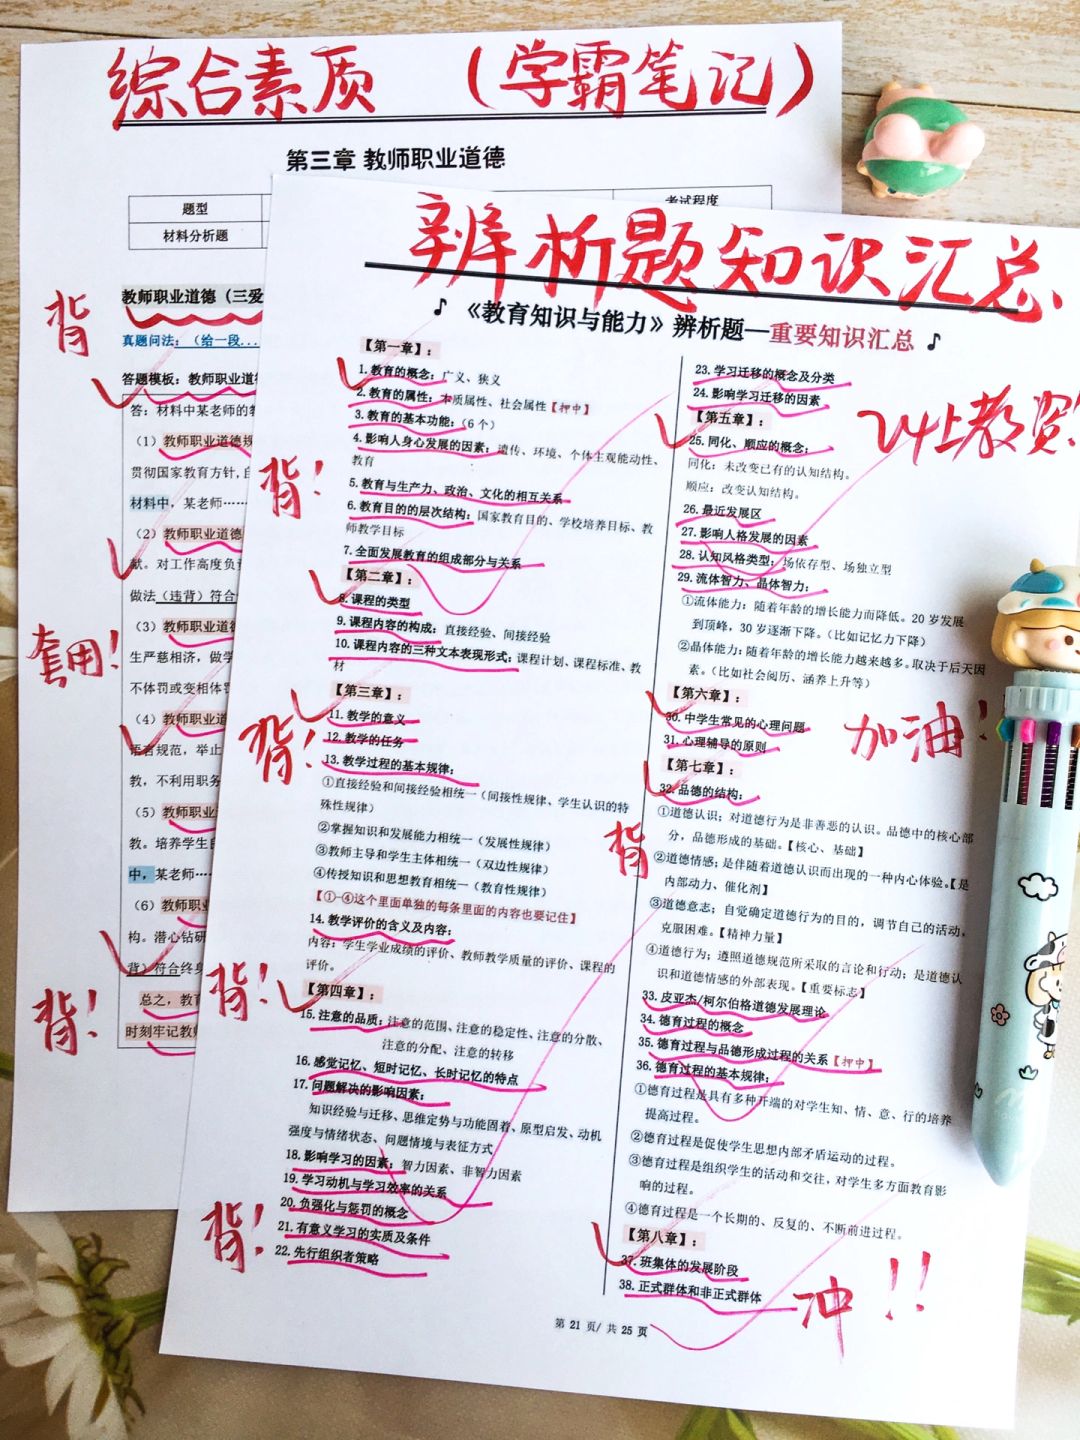 综合素质 （学霸笔记）
第三章 教师职业道德
题型
考试程度
材料分析题
背
教师职业道德（三爱
真题问法：（给一段...
答题模板：教师职业道
答：材料中某老师的教
（1）教师职业道德规
贯彻国家教育方针，自
材料中，某老师……
（2）教师职业道德
献。对工作高度负责
做法（违背）符合
套用！
（3）教师职业道
生严慈相济，做学
不体罚或变相体罚
（4）教师职业道
语言规范，举止
教，不利用职务
（5）教师职业
教。培养学生
中，某老师……
（6）教师职业
构。潜心钻研
背）符合终身
背！
总之，教育
时刻牢记教师
辨析题知识汇总
♪《教育知识与能力》辨析题—重要知识汇总♪
24上教资
【第一章】：
1.教育的概念：广义、狭义
2.教育的属性：本质属性、社会属性【押中】
3.教育的基本功能：（6个）
4.影响人身心发展的因素：遗传、环境、个体主观能动性、
教育
背！
5.教育与生产力、政治、文化的相互关系
6.教育目的的层次结构：国家教育目的、学校培养目标、教
师教学目标
7.全面发展教育的组成部分与关系
【第二章】：
8.课程的类型
9.课程内容的构成：直接经验、间接经验
10.课程内容的三种文本表现形式：课程计划、课程标准、教
材
【第三章】：
11.教学的意义
背！
12.教学的任务
13.教学过程的基本规律：
①直接经验和间接经验相统一（间接性规律、学生认识的特
殊性规律）
②掌握知识和发展能力相统一（发展性规律）
③教师主导和学生主体相统一（双边性规律）
④传授知识和思想教育相统一（教育性规律）
【①-④这个里面单独的每条里面的内容也要记住】
14.教学评价的含义及内容：
内容：学生学业成绩的评价、教师教学质量的评价、课程的
评价。
背！
【第四章】：
15.注意的品质：注意的范围、注意的稳定性、注意的分散、
注意的分配、注意的转移
16.感觉记忆、短时记忆、长时记忆的特点
17.问题解决的影响因素：
知识经验与迁移、思维定势与功能固着、原型启发、动机
强度与情绪状态、问题情境与表征方式
18.影响学习的因素：智力因素、非智力因素
19.学习动机与学习效率的关系
背！
20.负强化与惩罚的概念
21.有意义学习的实质及条件
22.先行组织者策略
23.学习迁移的概念及分类
24.影响学习迁移的因素
【第五章】：
25.同化、顺应的概念：
同化：未改变已有的认知结构。
顺应：改变认知结构。
26.最近发展区
27.影响人格发展的因素
28.认知风格类型：场依存型、场独立型
29.流体智力、晶体智力：
①流体能力：随着年龄的增长能力而降低。20岁发展
到顶峰，30岁逐渐下降。（比如记忆力下降）
②晶体能力：随着年龄的增长能力越来越多。取决于后天因
素。（比如社会阅历、涵养上升等）
【第六章】：
30.中学生常见的心理问题
加油！
31.心理辅导的原则
【第七章】：
32.品德的结构：
①道德认识：对道德行为是非善恶的认识。品德中的核心部
分，品德形成的基础。【核心、基础】
背
②道德情感：是伴随着道德认识而出现的一种内心体验。【是
内部动力、催化剂】
③道德意志：自觉确定道德行为的目的，调节自己的活动，
克服困难。【精神力量】
④道德行为：遵照道德规范所采取的言论和行动；是道德认
识和道德情感的外部表现。【重要标志】
33.皮亚杰/柯尔伯格道德发展理论
34.德育过程的概念
35.德育过程与品德形成过程的关系【押中】
36.德育过程的基本规律：
①德育过程是具有多种开端的对学生知、情、意、行的培养
提高过程。
②德育过程是促使学生思想内部矛盾运动的过程。
③德育过程是组织学生的活动和交往，对学生多方面教育影
响的过程。
④德育过程是一个长期的、反复的、不断前进过程。
【第八章】：
37.班集体的发展阶段
38.正式群体和非正式群体
冲！！
第 21 页/ 共 25 页